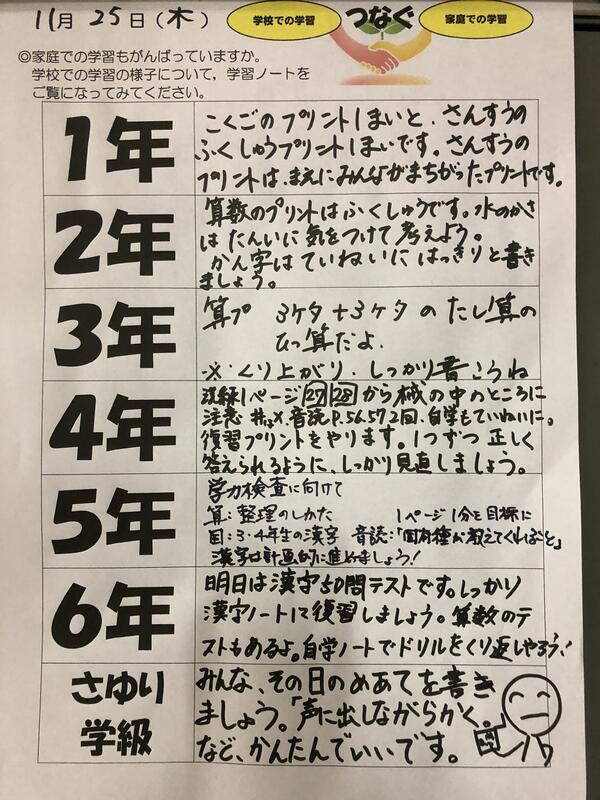 11月 25日(木)
学校での学習
つなぐ
家庭での学習
◎家庭での学習もがんばっていますか。
学校での学習の様子について，学習ノートを
ご覧になってみてください。
1年
こくごのプリント1まいと、さんすうの
ふくしゅうプリント1まいです。さんすうの
プリントは、まえにみんながまちがったプリントです。
2年
算数のプリントはふくしゅうです。水のかさ
はたんいに気をつけて考えよう。
かん字はていねいにはっきりと書き
ましょう。
3年
算プ 3ケタ+3ケタのたし算の
ひっ算だよ.
※くり上がり、しっかり書こうね
4年
1ページ 27 28 から械の中のところに
注意 音読P.56.57 2回、自学もていねいに。
復習プリントをやります。1つずつ正しく
答えられるように、しっかり見直しましょう。
5年
学力検査に向けて
算:整理のしかた 1ページ1分を目標に
国:3・4年生の漢字 音読:「固有種が教えてくれること」
漢字は計画的に進めましょう!
6年
明日は漢字50問テストです。しっかり
漢字ノートにて復習しましょう。算数のテ
ストもあるよ。自学ノートでドリルをくり返しやろう!
さゆり
学級
みんな、その日のめあてを書き
ましょう。「声に出しながらかく。」
など、かんたんでいいです。